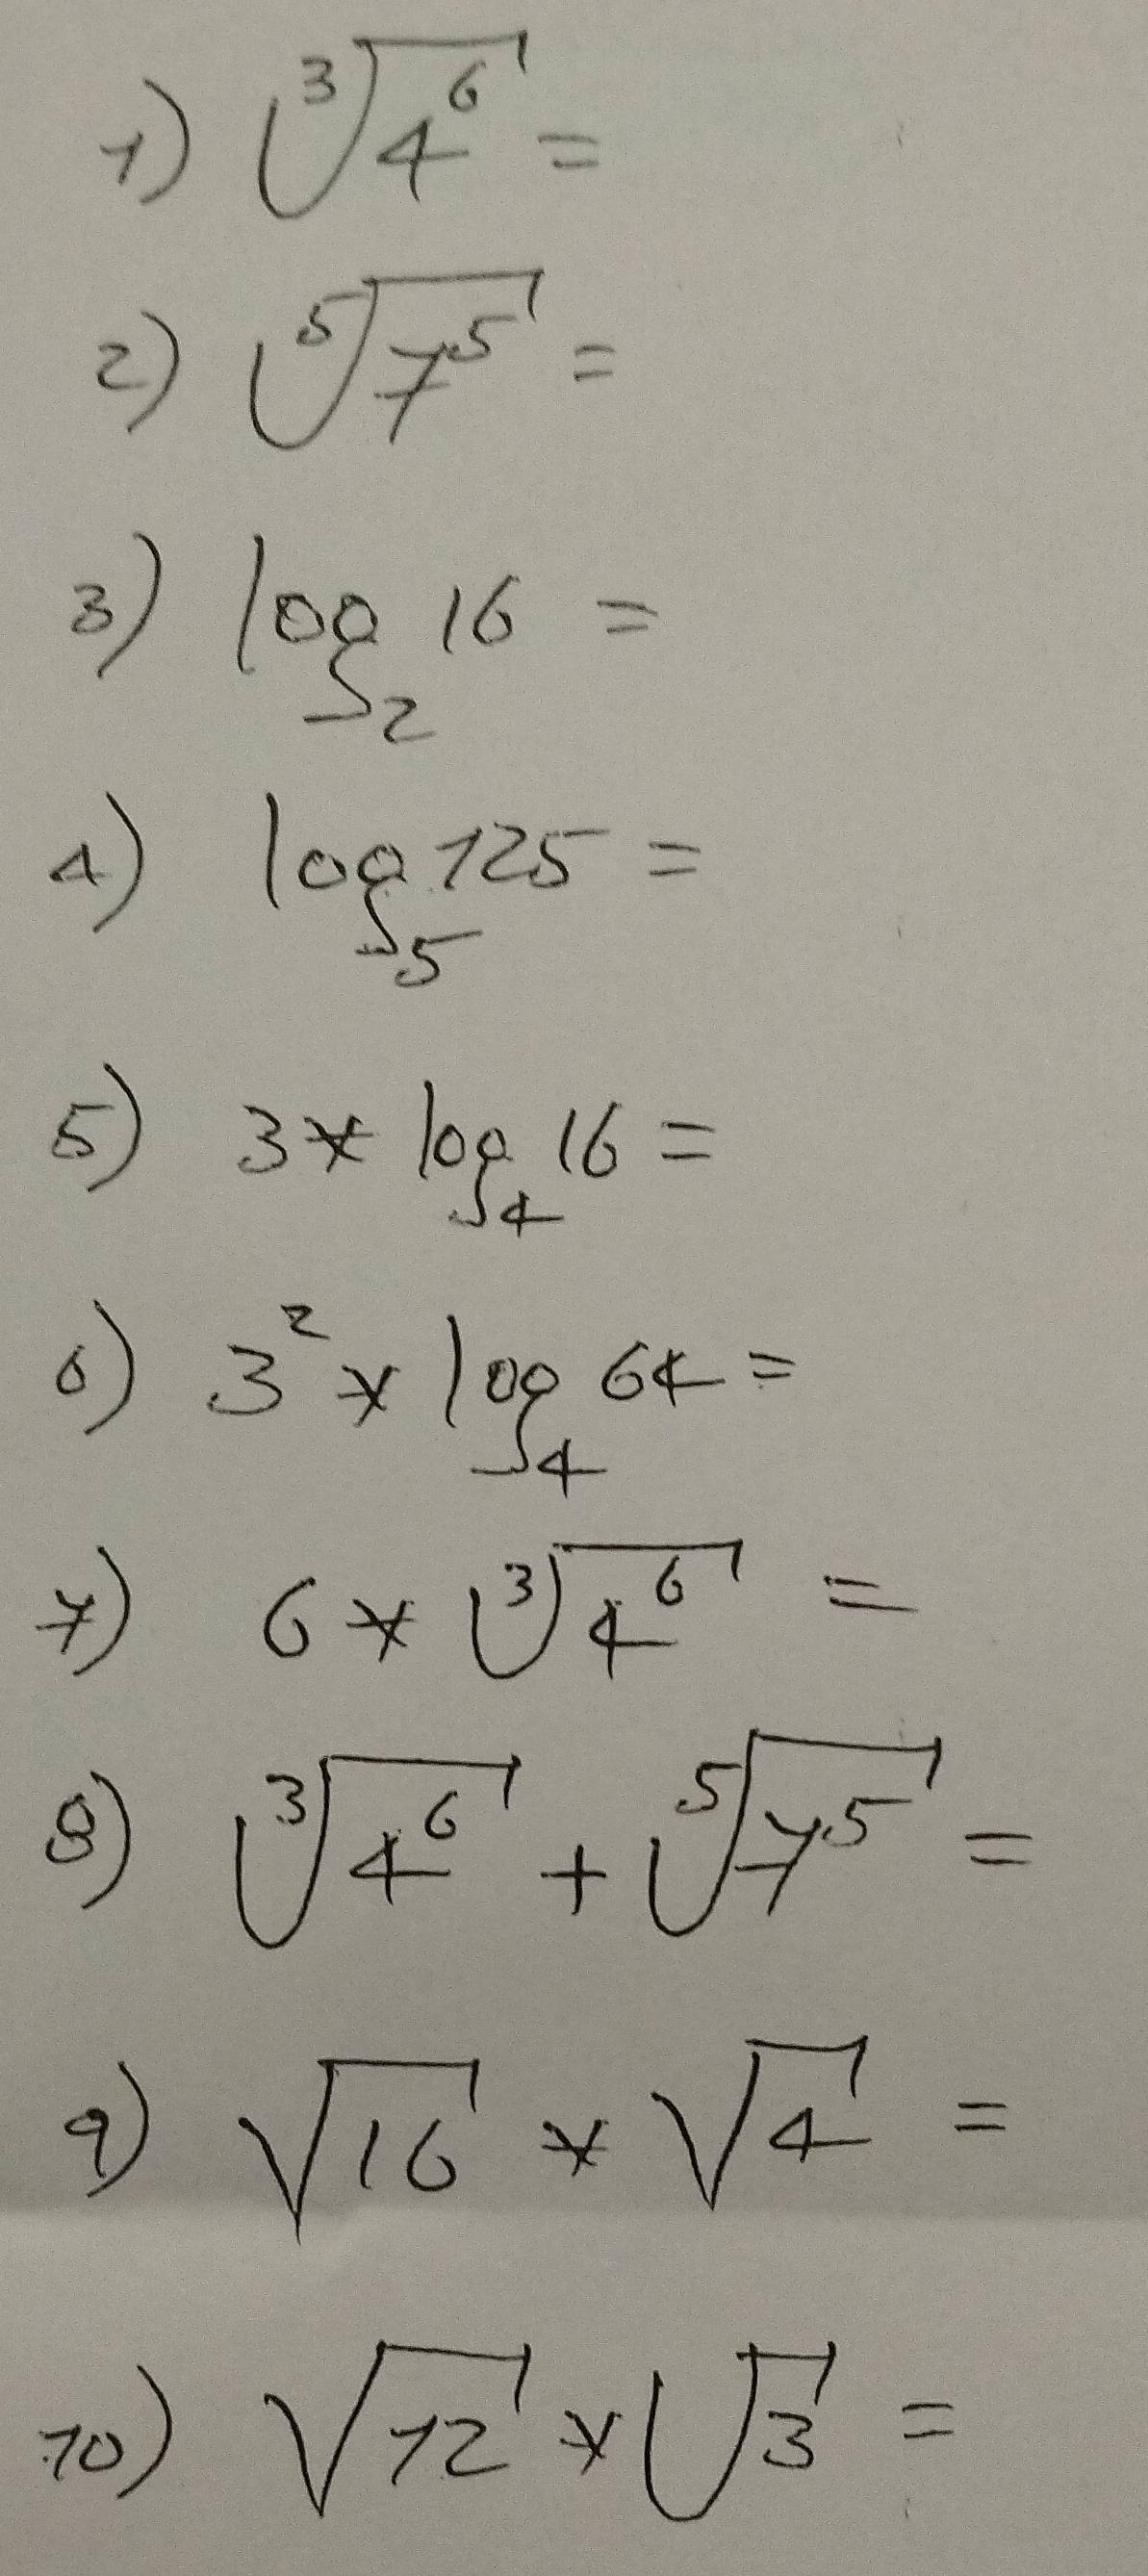 1) ∛4⁶ =
2) ⁵√7⁵ =
3) log₂ 16 =
4) log₅ 125 =
5) 3 * log₄ 16 =
6) 3² * log₄ 64 =
7) 6 * ∛4⁶ =
8) ∛4⁶ + ⁵√7⁵ =
9) √16 * √4 =
10) √12 * √3 =